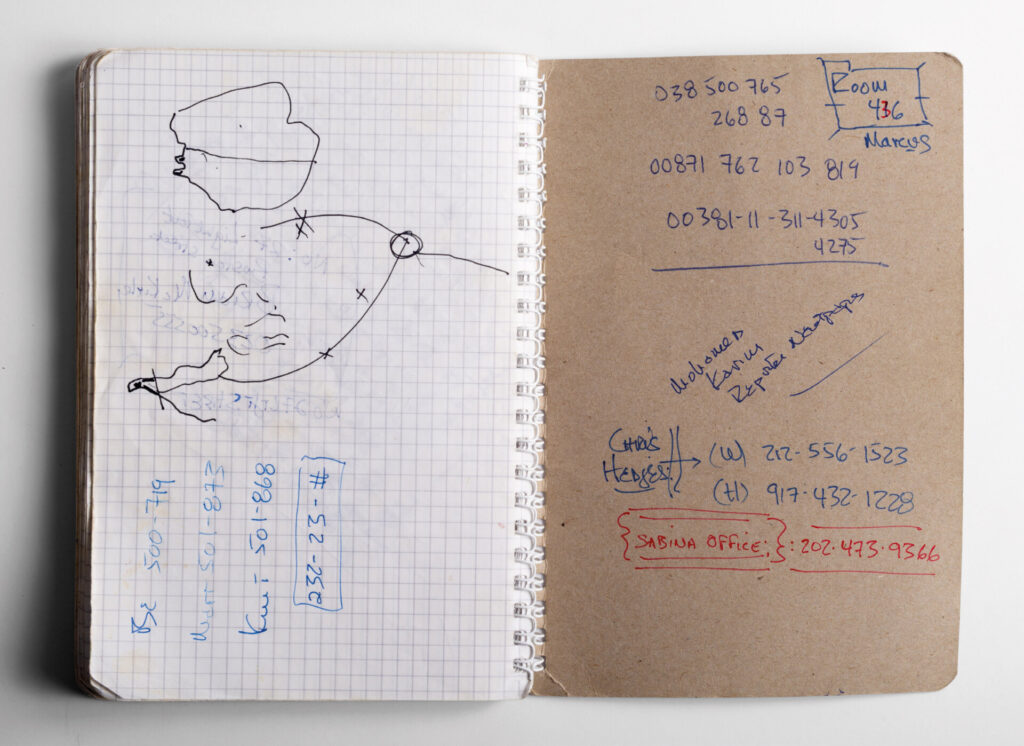 500-719
501-873
501-868
232-23-#
038 500 765
268 87
Room
436
Marcus
00871 762 103 819
00381-11-311-4305
4275
Mohamed
Karim
Reporter
Chris
Hedges: (W) 212-556-1523
(H) 917-432-1228
SABINA OFFICE: : 202.473.9366